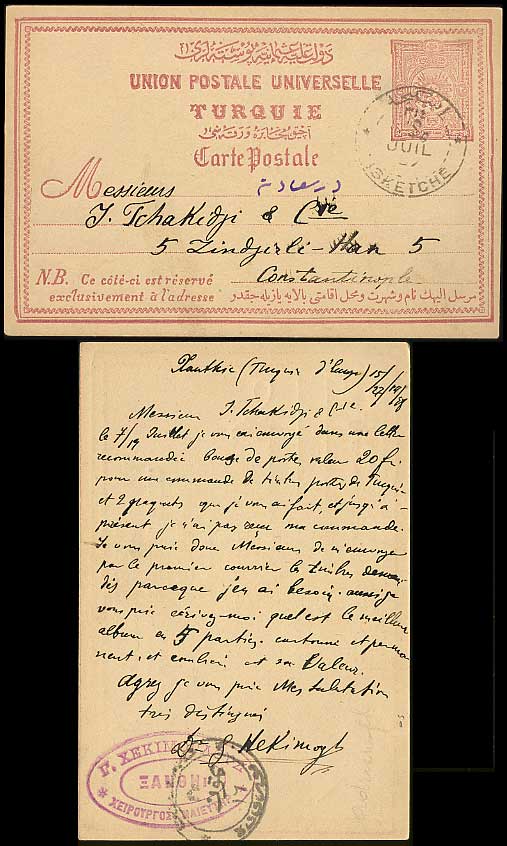 UNION POSTALE UNIVERSELLE
TURQUIE
Carte Postale
JUIL
ISKETCHÉ
Messieurs
در سعادت
J. Tchakidji & Cie
5 Zindjirli-Han 5
Constantinople
N.B. Ce côté-ci est réservé
exclusivement à l'adresse
مرسل اليهك نام و شهرت و محل اقامتى بالايه يازيله جقدر
Xanthie (Turquie d'Europe) 15/
Messieurs J. Tchakidji & Cie.
le 7/19 Juillet je vous ai envoyé dans une lettre
recommandée de poste valeur 20 fr.
pour une commande de timbres poste de Turquie
et 2 paquets que je vous ai fait, et jusqu'à
présent je n'ai pas reçu ma commande.
Je vous prie donc Messieurs de m'envoyer
par le premier courrier les timbres deman-
dés parceque j'en ai besoin. aussi je
vous prie écrivez-moi quel est le meilleur
album en 5 parties. cartonné et perma
nent. et combien et sa Valeur.
Agréez je vous prie Mes salutation
très distingués
Dr G. Hekimogl
Γ. ΧΕΚΙΜ
ΞΑΝΘΗ
ΧΕΙΡΟΥΡΓΟΣ